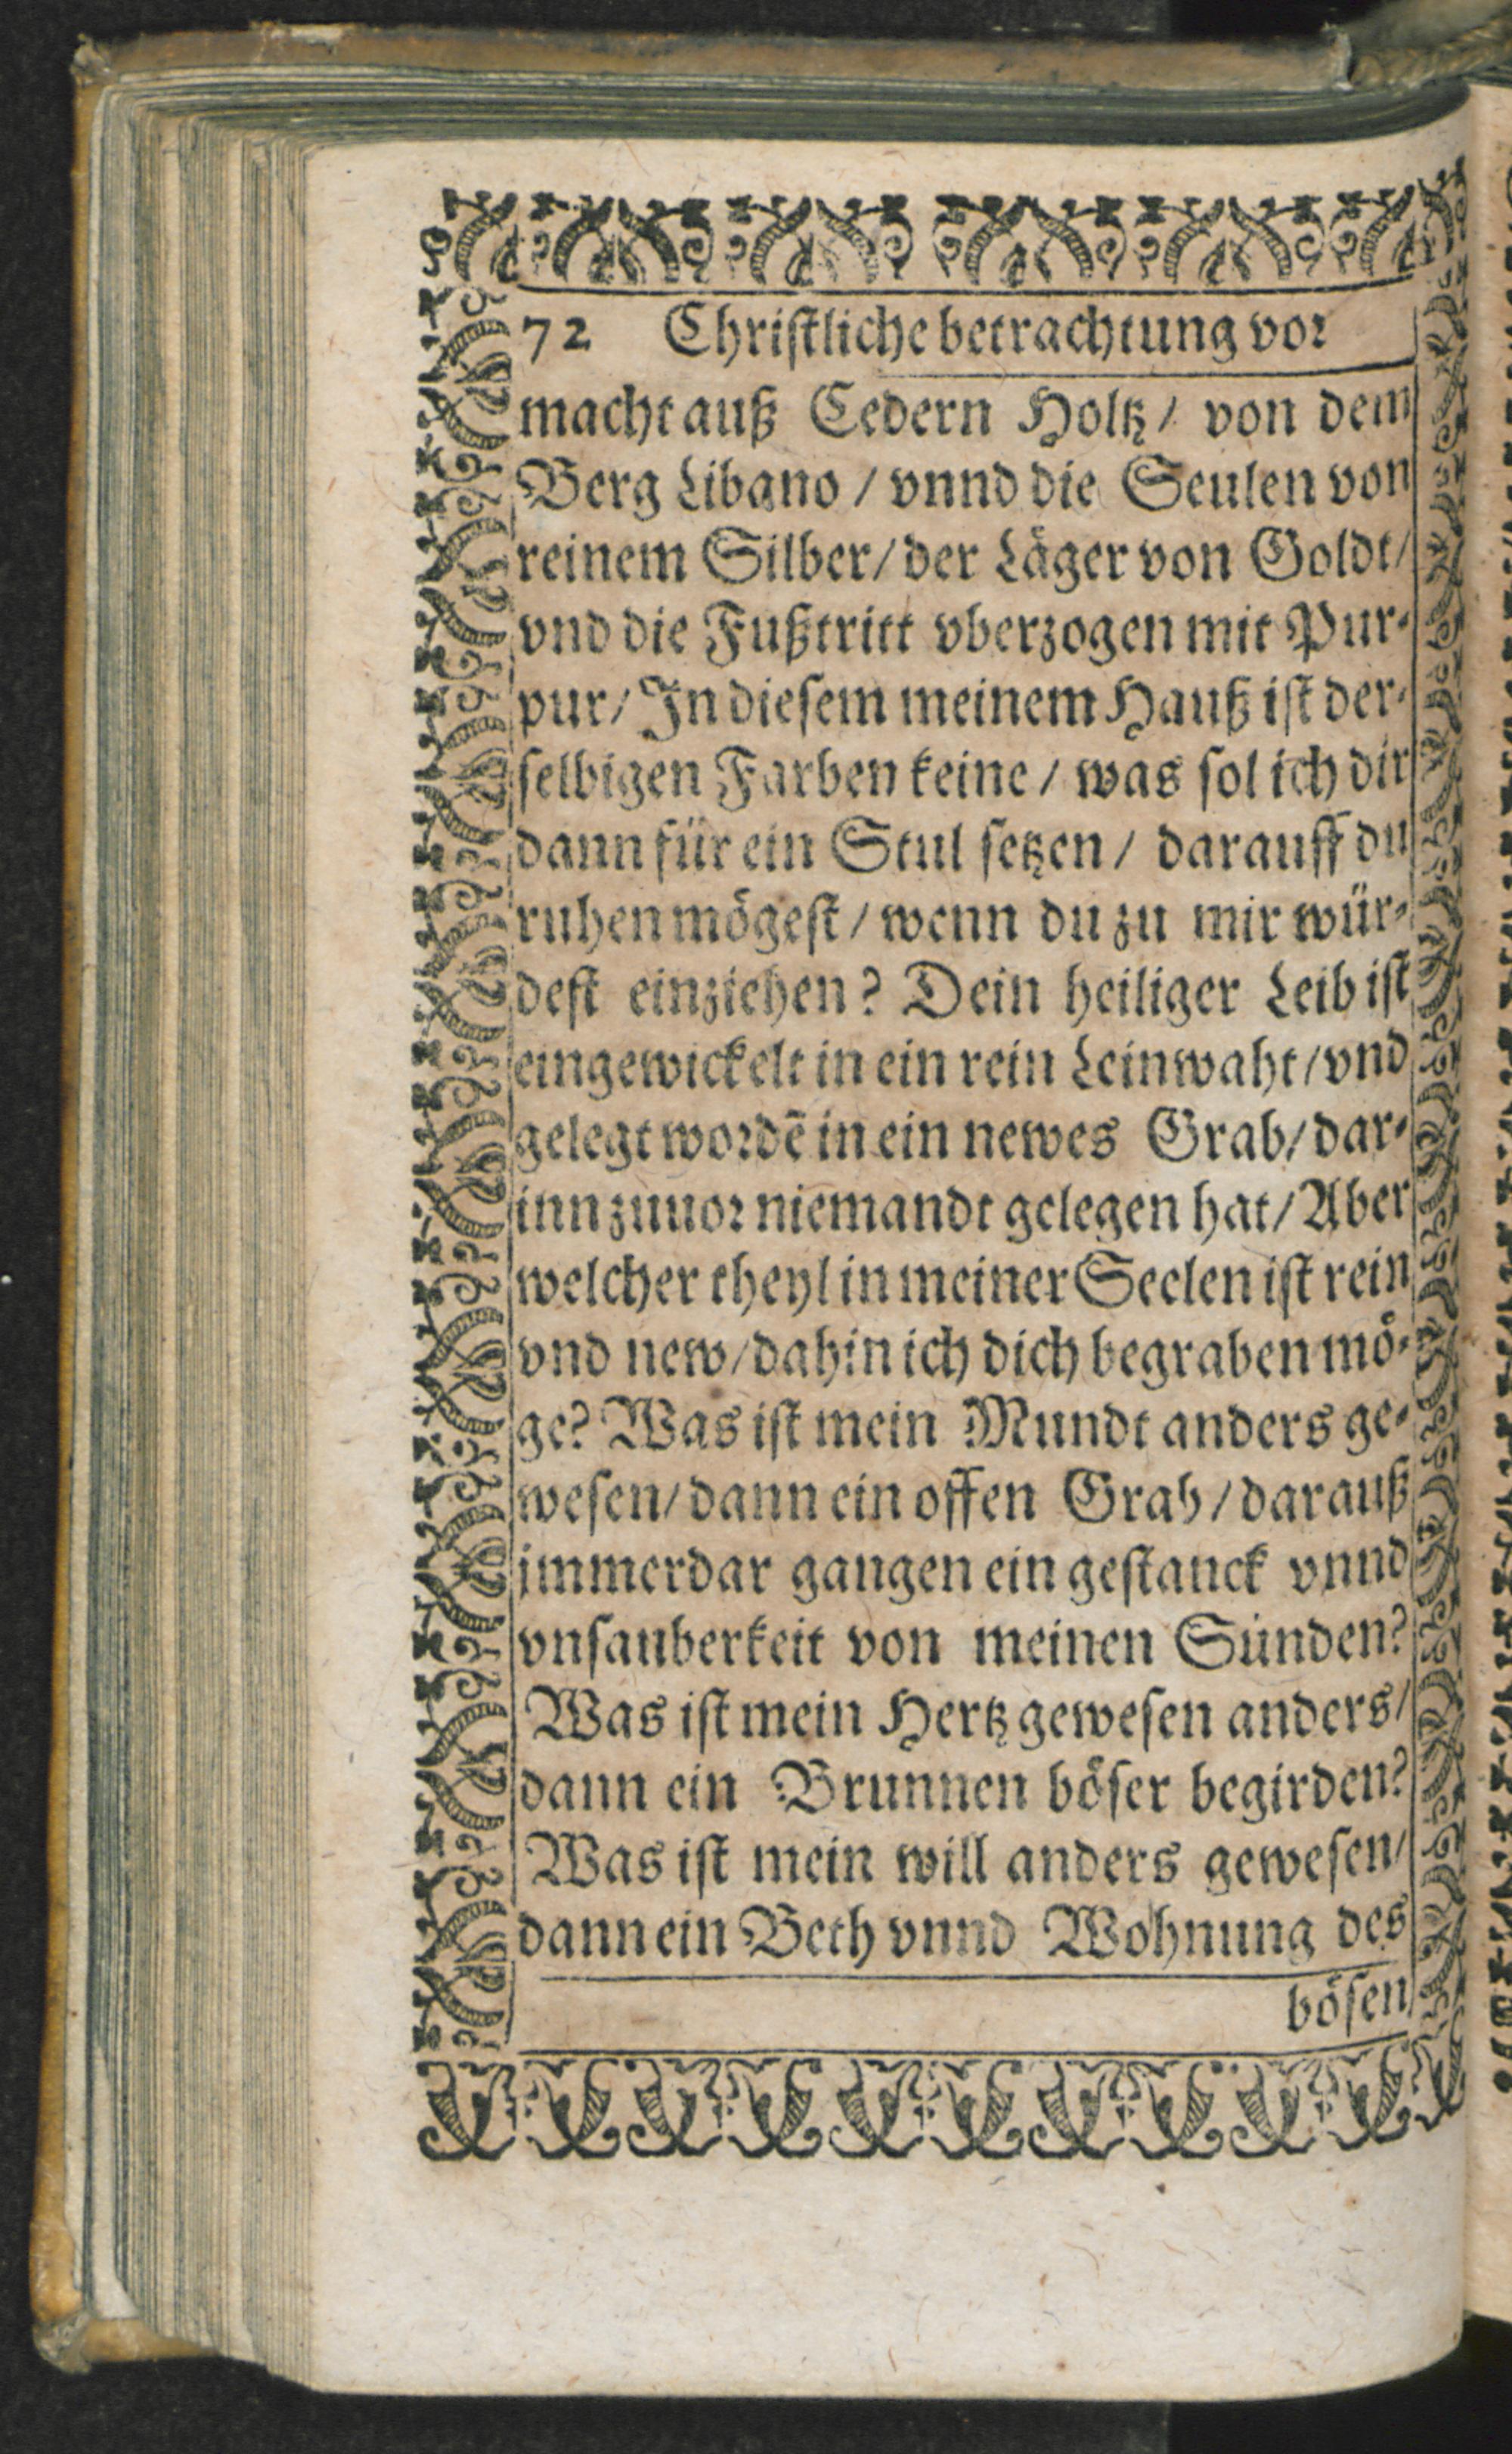 72 Christliche betrachtung vor
macht auß Cedern Holtz / von dem
Berg Libano / vnnd die Seulen von
reinem Silber / der Läger von Goldt /
vnd die Fußtritt vberzogen mit Pur-
pur / In diesem meinem Hauß ist der-
selbigen Farben keine / was sol ich dir
dann für ein Stul setzen / darauff du
ruhen mögest / wenn du zu mir wür-
dest einziehen? Dein heiliger Leib ist
eingewickelt in ein rein Leinwaht / vnd
gelegt wordē in ein newes Grab / dar-
inn zuuor niemandt gelegen hat / Aber
welcher theyl in meiner Seelen ist rein
vnd new / dahin ich dich begraben mö-
ge? Was ist mein Mundt anders ge-
wesen / dann ein offen Grab / darauß
jmmerdar gangen ein gestanck vnnd
vnsauberkeit von meinen Sünden?
Was ist mein Hertz gewesen anders /
dann ein Brunnen böser begirden?
Was ist mein will anders gewesen /
dann ein Beth vnnd Wohnung des
bösen